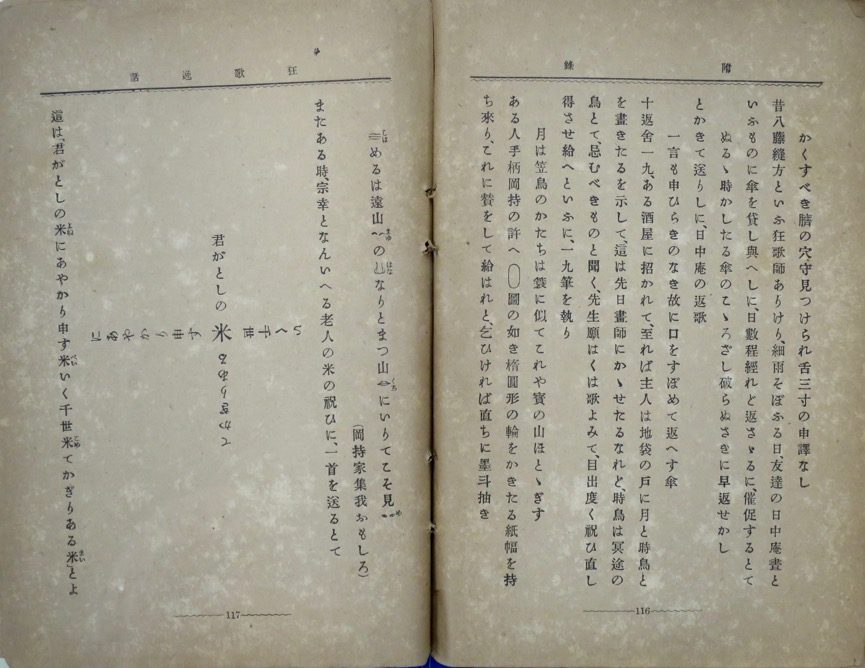 附錄
かくすべき臍の穴守見つけられ舌三寸の申譯なし
昔八藤縫方といふ狂歌師ありけり、細雨そぼふる日、友達の日中庵晝と
いふものに傘を貸し與へしに、日數程經れと返さゞるに、催促するとて
ぬるゝ時かしたる傘のこゝろざし破らぬさきに早返せかし
とかきて送りしに、日中庵の返歌
一言も申ひらきのなき故に口をすぼめて返へす傘
十返舍一九、ある酒屋に招かれて、至れば主人は地袋の戸に月と時鳥と
を畫きたるを示して、這は先日畫師にかゝせたるなれど、時鳥は冥途の
鳥とて、忌むべきものと聞く、先生願はくは歌よみて、目出度く祝ひ直し
得させ給へといふに、一九筆を執り
月は笠鳥のかたちは簑に似てこれや寳の山ほとゝぎす
ある人手柄岡持の許へ圖の如き楕圓形の輪をかきたる紙幅を持
ち來り、これに賛をして給はれと、乞ひければ直ちに墨斗抽き
116
狂歌逸話
めるは遠山のなりとまつ山にいりてこそ見
(岡持家集我おもしろ)
またある時、宗幸となんいへる老人の米の祝ひに、一首を送るとて
君がとしの米
いく千世
申す
あやかり
に
かぎりある
這は、君がとしの米にあやかり申す米いく千世米てかぎりある米とよ
117